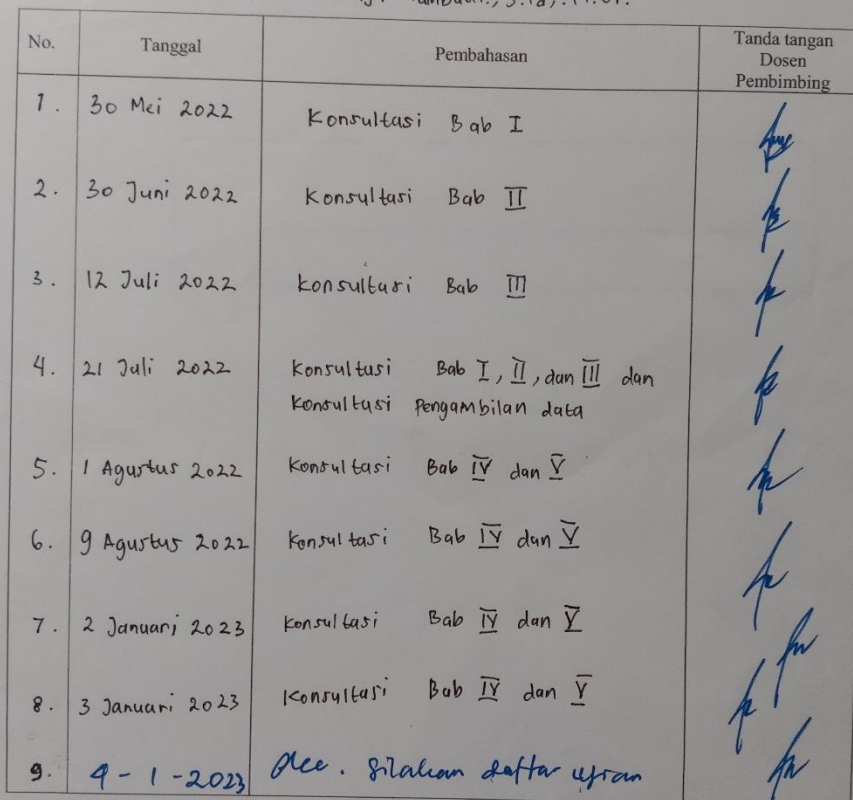 No. Tanggal Pembahasan Tanda tangan
Dosen
Pembimbing
1. 30 Mei 2022 Konsultasi Bab I
2. 30 Juni 2022 Konsultasi Bab II
3. 12 Juli 2022 Konsultasi Bab III
4. 21 Juli 2022 Konsultasi Bab I, II, dan III dan
Konsultasi Pengambilan data
5. 1 Agustus 2022 Konsultasi Bab IV dan V
6. 9 Agustus 2022 Konsultasi Bab IV dan V
7. 2 Januari 2023 Konsultasi Bab IV dan V
8. 3 Januari 2023 Konsultasi Bab IV dan V
9. 4-1-2023 Acc. Silahan daftar ujian